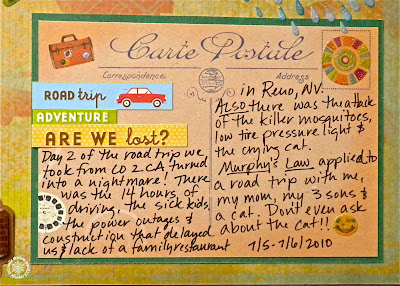 Carte Postale
Correspondence
Address
ROAD trip
ADVENTURE
ARE WE lost?
Day 2 of the road trip we
took from CO 2 CA turned
into a nightmare! There
was the 14 hours of
driving, the sick kids,
the power outages &
construction that delayed
us & lack of a family restaurant
in Reno, NV.
Also there was the attack
of the killer mosquitoes,
low tire pressure light &
the crying cat.
Murphy's Law applied to
a road trip with me,
my mom, my 3 sons &
a cat. Don't even ask
about the cat!!
7/5-7/6/2010